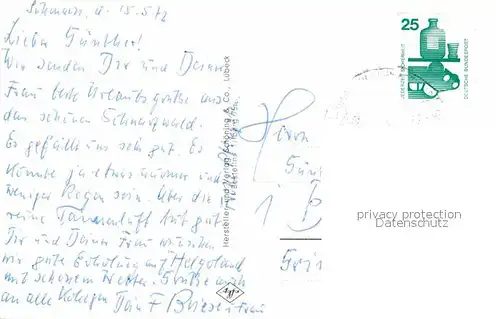 15.5.72
Lieber Günther!
Wir senden Dir und Deiner
Frau beste Urlaubsgrüße aus
dem schönen Schwarzwald.
Es gefällt uns sehr gut. Es
könnte ja etwas wärmer und
weniger Regen sein. Über die
reine Tannenluft tut gut.
Dir und Deiner Frau wünschen
wir gute Erholung auf Helgoland
mit schönem Wetter. Grüße auch
an alle Kollegen Dein F u. Frau
Hersteller und Verlag Schöning & Co., Lübeck
Herrn
Gün
1 B
25
JEDERZEIT SICHERHEIT
DEUTSCHE BUNDESPOST
privacy protection
Datenschutz